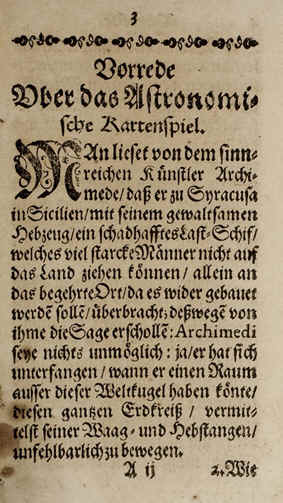 3
Vorrede
Vber das Astronomi⸗
sche Kartenspiel.
MAn lieset von dem sinn⸗
reichen Künstler Archi⸗
mede/ daß er zu Syracusa
in Sicilien/ mit seinem gewaltsamen
Hebzeug/ ein schadhafftes Last⸗Schif/
welches viel starcke Männer nicht auf
das Land ziehen können/ allein an
das begehrte Ort/ da es wider gebauet
werdẽ sollẽ/ überbracht; deßwegẽ von
ihme die Sage erschollẽ: Archimedi
seye nichts unmöglich: ja/ er hat sich
unterfangen/ wann er einen Raum
ausser dieser Weltkugel haben könte/
diesen gantzen Erdkreiß/ vermit⸗
telst seiner Waag⸗ und Hebstangen/
unfehlbarlich zu bewegen.
A ij
2. Wie